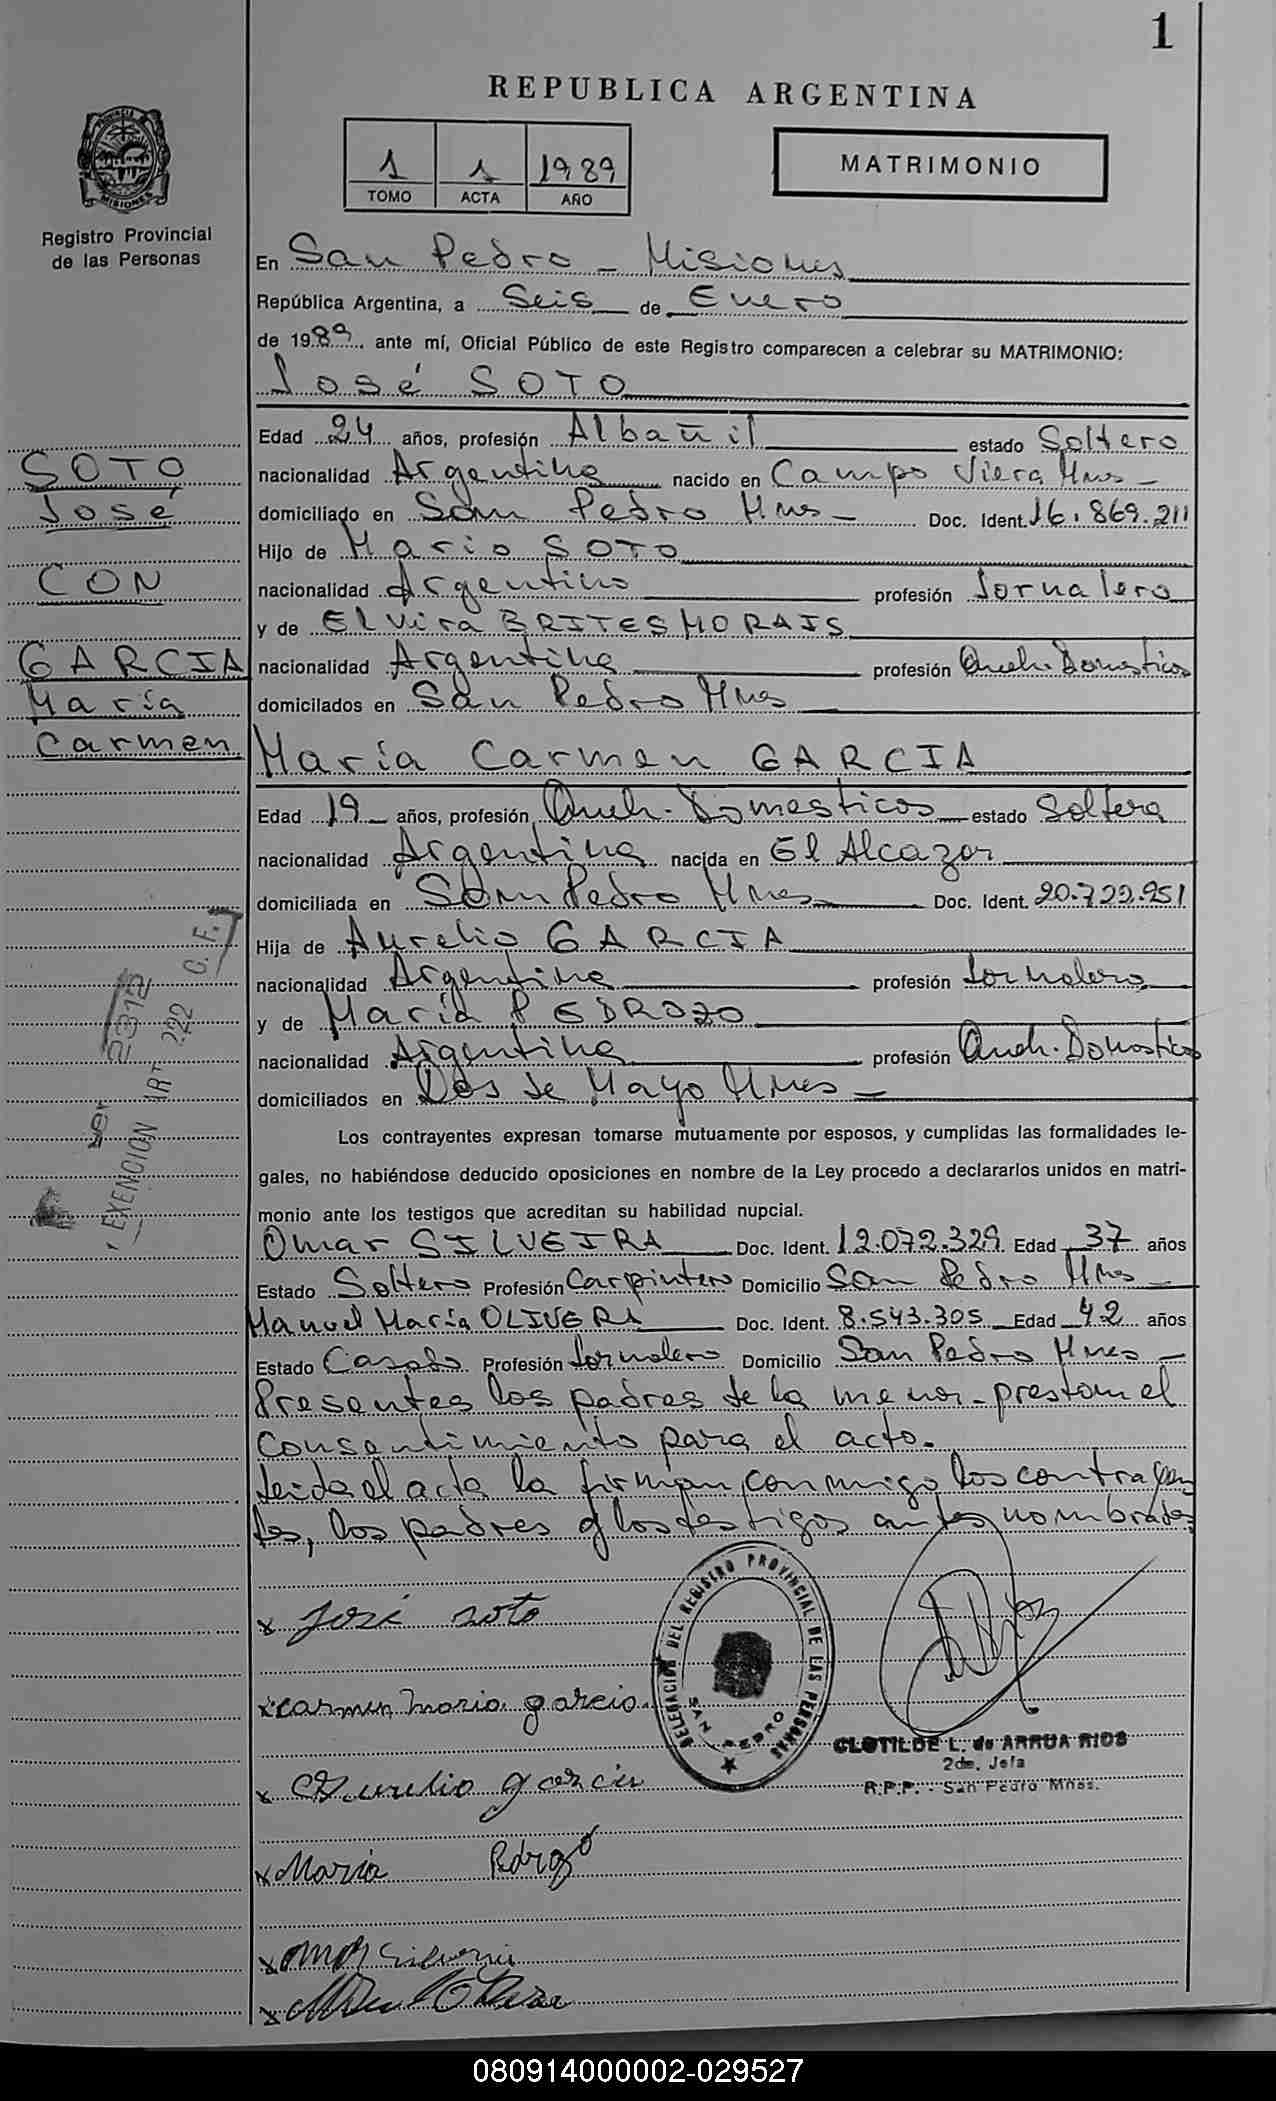 1
REPUBLICA ARGENTINA
PROVINCIA DE
MISIONES
Registro Provincial
de las Personas
1 1 1989
TOMO ACTA AÑO
MATRIMONIO
En San Pedro - Misiones
República Argentina, a Seis de Enero
de 1989, ante mí, Oficial Público de este Registro comparecen a celebrar su MATRIMONIO:
José SOTO
Edad 24 años, profesión Albañil estado Soltero
SOTO
nacionalidad Argentina nacido en Campo Viera Mnes -
José
domiciliado en San Pedro Mnes - Doc. Ident. 16.869.211
Hijo de Mario SOTO
CON
nacionalidad Argentino profesión Jornalero
y de Elvira BRITES MORAIS
GARCIA
nacionalidad Argentina profesión Queh. Domesticos
María
domicilados en San Pedro Mnes
Carmen
María Carmen GARCIA
Edad 19 - años, profesión Queh. Domesticos estado Soltera
nacionalidad Argentina nacida en El Alcazar
domiciliada en San Pedro Mnes - Doc. Ident. 20.722.951
Hija de Aurelio GARCIA
nacionalidad Argentino profesión Jornalero
y de María PEDROZO
nacionalidad Argentina profesión Queh. Domesticos
domiciliados en Dos de Mayo Mnes -
EXENCION ART 222 C. F.
Ley 2312
Los contrayentes expresan tomarse mutuamente por esposos, y cumplidas las formalidades le-
gales, no habiéndose deducido oposiciones en nombre de la Ley procedo a declararlos unidos en matri-
monio ante los testigos que acreditan su habilidad nupcial.
Omar SILVEIRA Doc. Ident. 12.072.329 Edad 37 años
Estado Soltero Profesión Carpintero Domicilio San Pedro Mnes -
Manuel María OLIVERA Doc. Ident. 8.543.305 Edad 42 años
Estado Casado Profesión Jornalero Domicilio San Pedro Mnes -
Presentes los padres de la menor - prestan el
consentimiento para el acto.
Leida el acta la firman conmigo los contrayen
tes, los padres y los testigos antes nombrados
x José Soto
x carmen maria garcia
x Aurelio garcia
x Maria Pdrozo
x omar Silveira
DELEGACION DEL REGISTRO PROVINCIAL DE LAS PERSONAS
SAN PEDRO
CLOTILDE L. de ARRUA RIOS
2da. Jefa
R.P.P. - San Pedro Mnes.
080914000002-029527